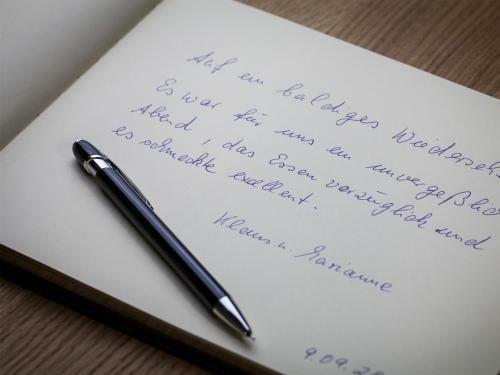 Auf ein baldiges Wiederseh
Es war für uns ein unvergeßlich
Abend, das Essen vorzüglich und
es schmeckte exellent.
Klaus u. Marianne
9.09.20